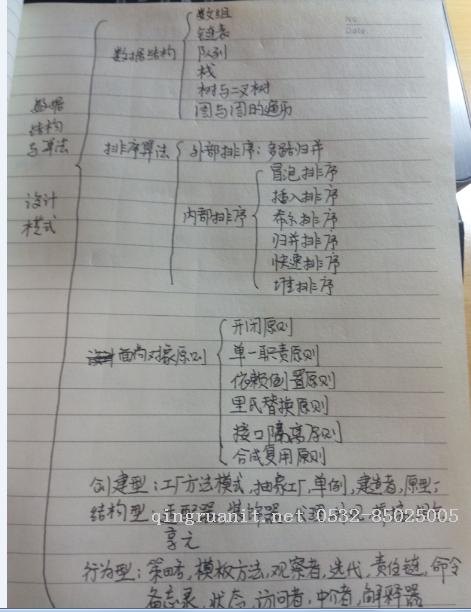 No.
Date.
数据
结构
与算法
设计
模式
数据结构
数组
链表
队列
栈
树与二叉树
图与图的遍历
排序算法
外部排序：多路归并
内部排序
冒泡排序
插入排序
希尔排序
归并排序
快速排序
堆排序
面向对象原则
开闭原则
单一职责原则
依赖倒置原则
里氏替换原则
接口隔离原则
合成复用原则
创建型：工厂方法模式，抽象工厂，单例，建造者，原型；
结构型：适配器
qingruanit.com 0532-85025005
享元
行为型：策略，模板方法，观察者，迭代，责任链，命令
备忘录，状态，访问者，中介者，解释器